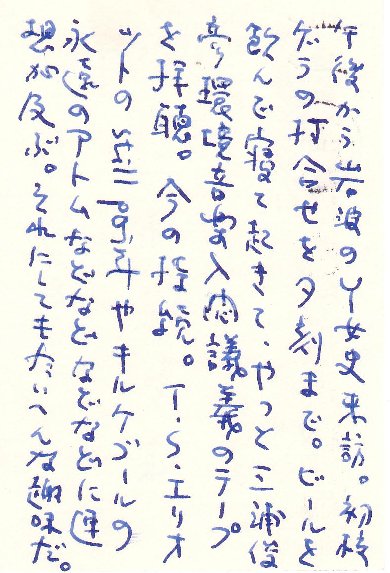 午後から岩波のY女史来訪。初校
ゲラの打合せを夕刻まで。ビールを
飲んで寝て起きて、やっと三浦俊
環境音楽入門講義のテープ
を拝聴。今の持続。T・S・エリオ
ットの still point やキルケゴールの
永遠のアトムなどなどなどなどに連
想が及ぶ。それにしてもたいへんな趣味だ。